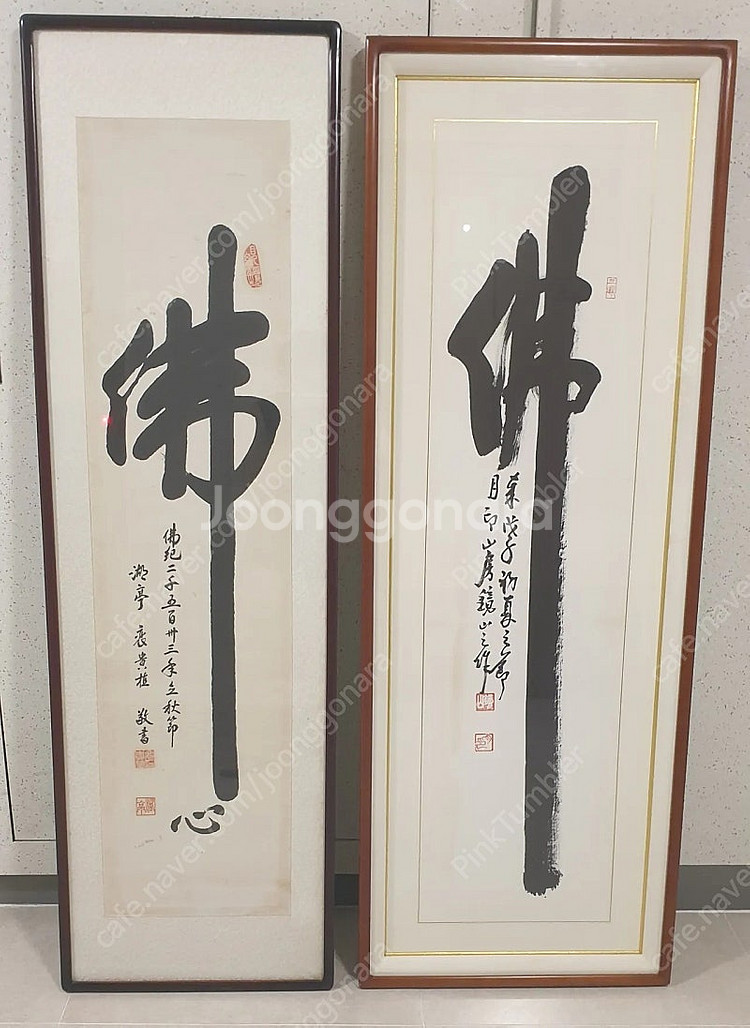 佛
心
佛紀二千五百卅三年立秋節
湖亭 敬書
佛
戊子初夏之節
月印山房鏡山之作
Joonggonara
cafe.naver.com/joonggonara
PinkTumbler